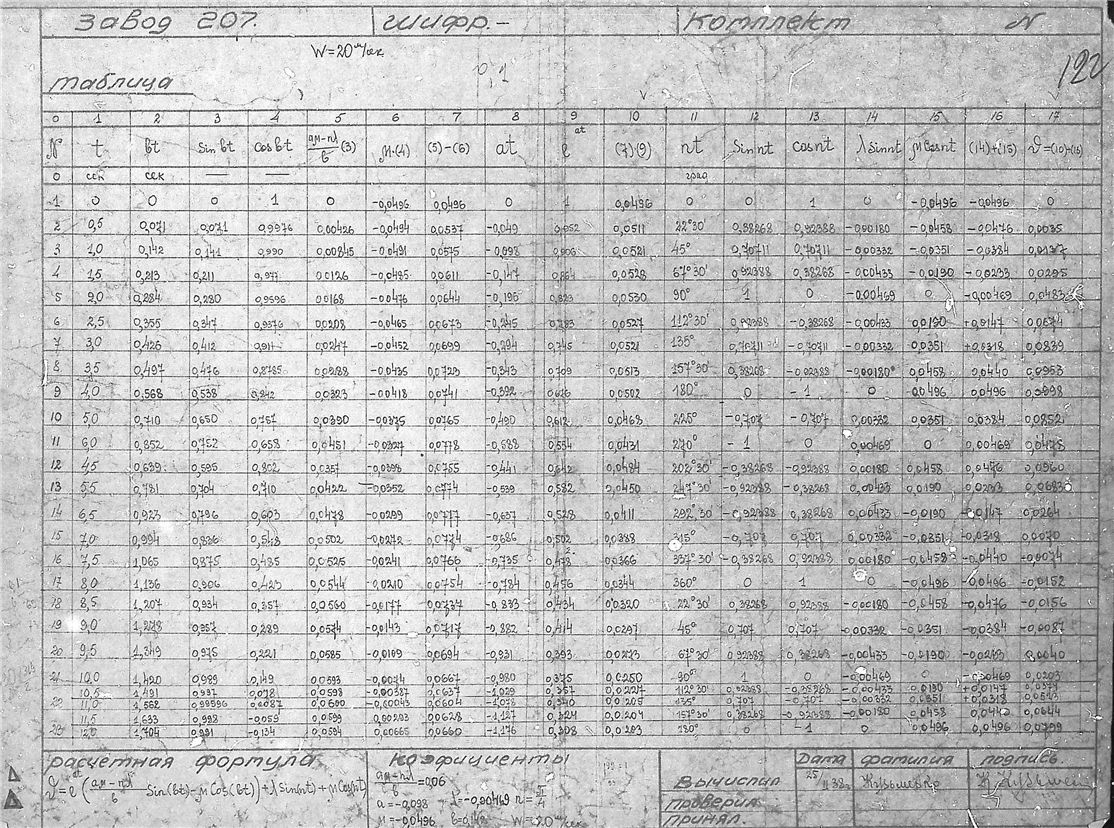 Завод 207. Шифр.- Комплект N
W=20 м/сек
0,1
122
таблица
0 1 2 3 4 5 6 7 8 9 10 11 12 13 14 15 16 17
N t bt Sin bt cos bt (3) м·(4) (5)-(6) at e^at (7)·(9) nt Sin nt cos nt λ sin nt м Cos nt (14)+(15) ϑ=(10)+(16)
0 сек сек — — град
1 0 0 0 1 0 -0,0496 0,0496 0 1 0,0496 0 0 1 0 -0,0496 -0,0496 0
2 0,5 0,071 0,071 0,9976 0,00426 -0,0494 0,0537 -0,049 0,952 0,0511 22°30' 0,38268 0,92388 -0,00180 -0,0458 -0,0476 0,0035
3 1,0 0,142 0,141 0,990 0,00845 -0,0491 0,0575 -0,098 0,906 0,0521 45° 0,70711 0,70711 -0,00332 -0,0351 -0,0384 0,0137
4 1,5 0,213 0,211 0,977 0,0126 -0,0485 0,0611 -0,147 0,864 0,0528 67°30' 0,92388 0,38268 -0,00433 -0,0190 -0,0233 0,0295
5 2,0 0,284 0,280 0,9596 0,0168 -0,0476 0,0644 -0,196 0,823 0,0530 90° 1 0 -0,00469 0 -0,00469 0,0483
6 2,5 0,355 0,347 0,9376 0,0208 -0,0465 0,0673 -0,245 0,783 0,0527 112°30' 0,92388 -0,38268 -0,00433 0,0190 +0,0147 0,0674
7 3,0 0,426 0,412 0,911 0,0247 -0,0452 0,0699 -0,294 0,745 0,0521 135° 0,70711 -0,70711 -0,00332 0,0351 +0,0318 0,0839
8 3,5 0,497 0,476 0,8785 0,0288 -0,0435 0,0723 -0,343 0,709 0,0513 157°30' 0,38268 -0,92388 -0,00180 0,0458 0,0440 0,0953
9 4,0 0,568 0,538 0,842 0,0323 -0,0418 0,0741 -0,392 0,676 0,0502 180° 0 -1 0 0,0496 0,0496 0,0998
10 5,0 0,710 0,650 0,757 0,0390 -0,0375 0,0765 -0,490 0,612 0,0468 225° -0,707 -0,707 0,00332 0,0351 0,0384 0,0852
11 6,0 0,852 0,752 0,658 0,0451 -0,0327 0,0778 -0,588 0,554 0,0431 270° -1 0 0,00469 0 0,00469 0,0478
12 4,5 0,639 0,595 0,802 0,0357 -0,0398 0,0755 -0,441 0,642 0,0484 202°30' -0,38268 -0,92388 0,00180 0,0458 0,0476 0,0960
13 5,5 0,781 0,704 0,710 0,0422 -0,0352 0,0774 -0,539 0,582 0,0450 247°30' -0,92388 -0,38268 0,00433 0,0190 0,0233 0,0683
14 6,5 0,923 0,796 0,603 0,0478 -0,0299 0,0777 -0,637 0,528 0,0411 292°30 -0,92388 0,38268 0,00433 -0,0190 -0,0147 0,0264
15 7,0 0,994 0,836 0,548 0,0502 -0,0272 0,0774 -0,686 0,502 0,0388 315° -0,707 0,707 0,00332 -0,0351 -0,0318 0,0070
16 7,5 1,065 0,875 0,485 0,0525 -0,0241 0,0766 -0,735 0,478 0,0366 337°30' -0,38268 0,92388 0,00180 -0,0458 -0,0440 -0,0074
17 8,0 1,136 0,906 0,423 0,0544 -0,0210 0,0754 -0,784 0,456 0,0344 360° 0 1 0 -0,0496 -0,0496 -0,0152
18 8,5 1,207 0,934 0,357 0,0560 -0,0177 0,0737 -0,833 0,434 0,0320 22°30' 0,38268 0,92388 -0,00180 -0,0458 -0,0476 -0,0156
19 9,0 1,278 0,957 0,289 0,0574 -0,0143 0,0717 -0,882 0,414 0,0297 45° 0,707 0,707 -0,00332 -0,0351 -0,0384 -0,0087
20 9,5 1,349 0,975 0,221 0,0585 -0,0109 0,0694 -0,931 0,393 0,0273 67°30' 0,92388 0,38268 -0,00433 -0,0190 -0,0233 0,0040
21 10,0 1,420 0,989 0,149 0,0593 -0,0074 0,0667 -0,980 0,375 0,0250 90° 1 0 -0,00469 0 -0,00469 0,0203
10,5 1,491 0,997 0,078 0,0598 -0,00387 0,0637 -1,029 0,357 0,0227 112°30' 0,92388 -0,38268 -0,00433 0,0190 +0,0147 0,0374
22 11,0 1,562 0,99996 0,0087 0,0600 -0,00043 0,0604 -1,078 0,340 0,0205 135° 0,707 -0,707 -0,00332 0,0351 +0,0318 0,0523
11,5 1,633 0,998 -0,059 0,0599 0,00293 0,0628 -1,127 0,324 0,0204 157°30' 0,38268 -0,92388 -0,00180 0,0458 0,0440 0,0644
23 12,0 1,704 0,991 -0,134 0,0594 0,00665 0,0660 -1,176 0,308 0,0203 180° 0 -1 0 0,0496 0,0496 0,0799
расчетная формула коэфициенты Дата фамилия подпись.
Sin(bt)-м Cos(bt)) + λ Sin nt) + м Cos nt =0,06 Вычислил
a=-0,098 -0,00469 проверил
м=-0,0496 W=20 м/сек принял.